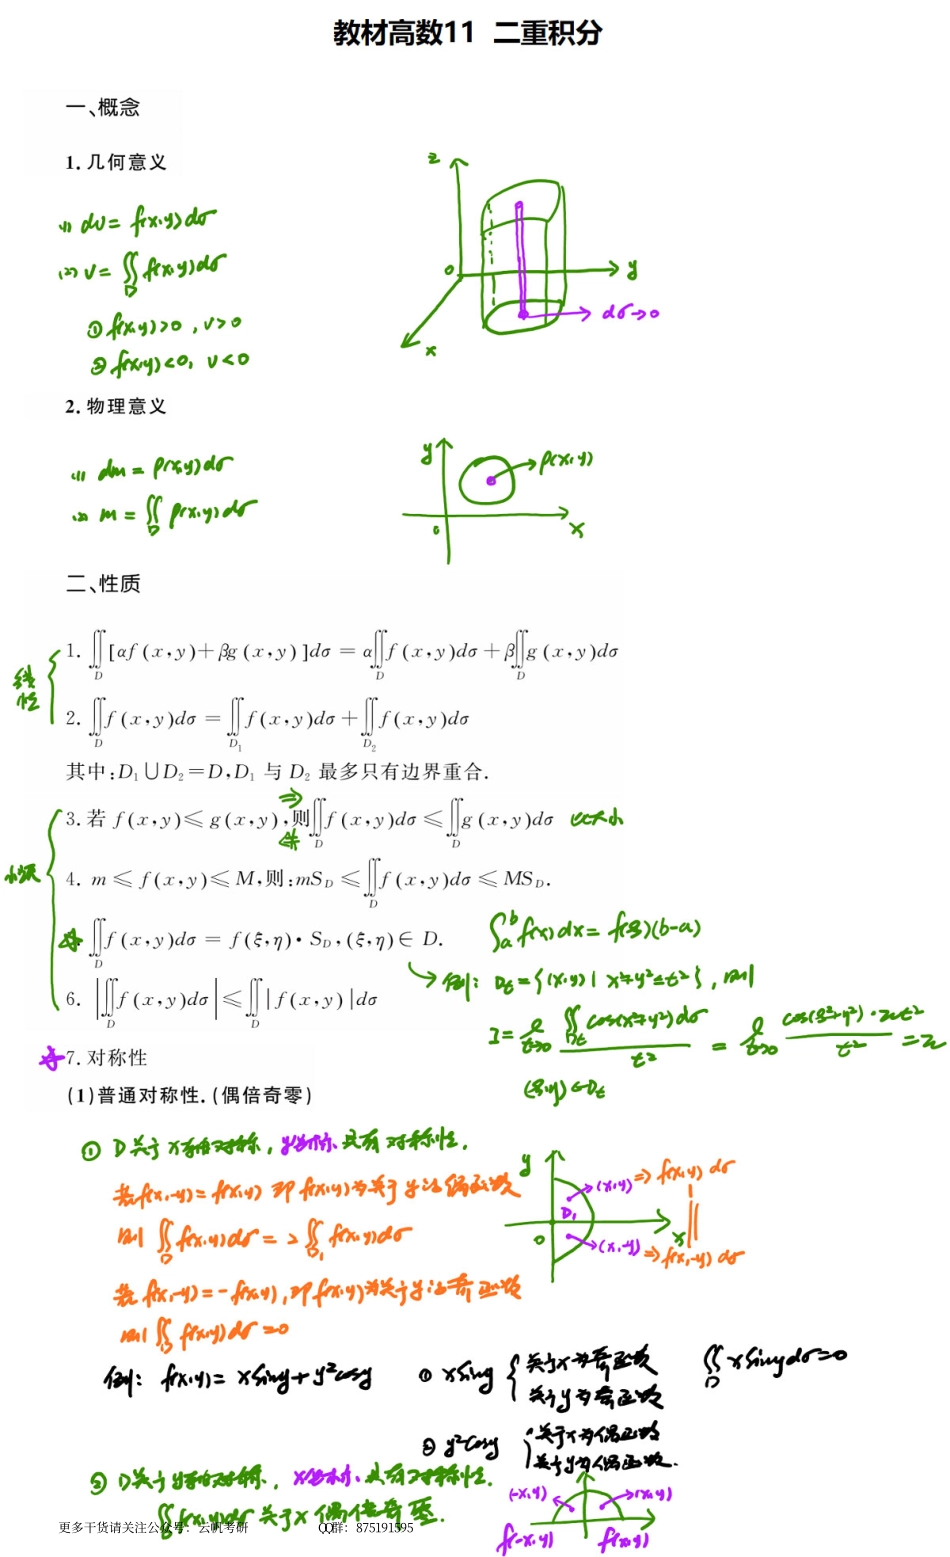 教材高数11 二重积分
一、概念
1. 几何意义
(1) dv = f(x,y)dσ
(2) v = ∬_D f(x,y)dσ
① f(x,y)>0, v>0
② f(x,y)<0, v<0
z
o
y
x
dσ→0
2. 物理意义
(1) dm = ρ(x,y)dσ
(2) m = ∬_D ρ(x,y)dσ
y
ρ(x,y)
o
x
二、性质
线性
1. ∬_D [αf(x,y)+βg(x,y)]dσ = α∬_D f(x,y)dσ + β∬_D g(x,y)dσ
2. ∬_D f(x,y)dσ = ∬_{D₁} f(x,y)dσ + ∬_{D₂} f(x,y)dσ
其中:D₁∪D₂=D,D₁ 与 D₂ 最多只有边界重合.
3. 若 f(x,y)≤g(x,y),则∬_D f(x,y)dσ ≤ ∬_D g(x,y)dσ 比大小
4. m≤f(x,y)≤M,则:mS_D ≤ ∬_D f(x,y)dσ ≤ MS_D.
∬_D f(x,y)dσ = f(ξ,η)·S_D,(ξ,η)∈D.
∫_a^b f(x)dx = f(ξ)(b-a)
例: D_t={(x,y)|x²+y²≤t²}, 则
I = ℓ_{t→0} ∬_{D_t} cos(x²+y²)dσ / t² = ℓ_{t→0} cos(ξ²+η²)·πt² / t² = π
(ξ,η)∈D_t
6. |∬_D f(x,y)dσ| ≤ ∬_D |f(x,y)|dσ
7. 对称性
(1)普通对称性.(偶倍奇零)
① D关于x轴对称, y坐标具有对称性.
若f(x,-y)=f(x,y) 即f(x,y)为关于y的偶函数
则 ∬_D f(x,y)dσ = 2∬_{D₁} f(x,y)dσ
若f(x,-y)=-f(x,y), 即f(x,y)为关于y的奇函数
则∬_D f(x,y)dσ=0
y
(x,y) ⇒ f(x,y)dσ
D₁
o
x
(x,-y) ⇒ f(x,-y)dσ
例: f(x,y)= xsiny+y²cosy
① xsiny { 关于x为奇函数
关于y为奇函数
∬_D xsinydσ=0
② y²cosy { 关于x为偶函数
关于y为偶函数.
② D关于y轴对称, x坐标具有对称性.
∬_D f(x,y)dσ 关于x偶倍奇零.
(-x,y)
(x,y)
f(-x,y)
f(x,y)
更多干货请关注公众号: 云帆考研
QQ群: 875191595